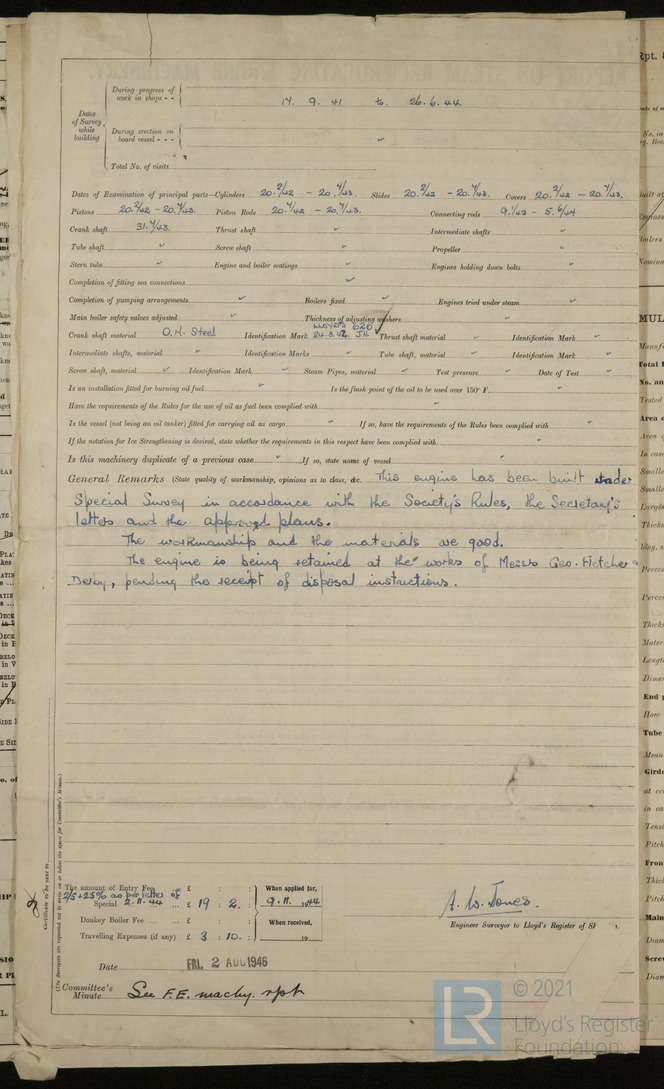 During progress of
work in shops - -
17. 9. 41 to 26.6.44
Dates
of Survey
while
building
During erection on
board vessel - - -
Total No. of visits
Dates of Examination of principal parts—Cylinders 20.2/42 - 20.4/43. Slides 20.2/42 - 20.4/43. Covers 20.2/42 - 20.4/43.
Pistons 20.2/42 - 20.4/43. Piston Rods 20.4/42 - 20.4/43. Connecting rods 9.1/42 - 5.6/44
Crank shaft 31.4/43. Thrust shaft Intermediate shafts
Tube shaft Screw shaft Propeller
Stern tube Engine and boiler seatings Engines holding down bolts
Completion of fitting sea connections
Completion of pumping arrangements Boilers fixed Engines tried under steam
Main boiler safety valves adjusted Thickness of adjusting washers
Crank shaft material O.H. Steel Identification Mark LLOYD'S 626 24.3.42. JH Thrust shaft material Identification Mark
Intermediate shafts, material Identification Marks Tube shaft, material Identification Mark
Screw shaft, material Identification Mark Steam Pipes, material Test pressure Date of Test
Is an installation fitted for burning oil fuel Is the flash point of the oil to be used over 150° F.
Have the requirements of the Rules for the use of oil as fuel been complied with
Is the vessel (not being an oil tanker) fitted for carrying oil as cargo If so, have the requirements of the Rules been complied with
If the notation for Ice Strengthening is desired, state whether the requirements in this respect have been complied with
Is this machinery duplicate of a previous case If so, state name of vessel
General Remarks (State quality of workmanship, opinions as to class, &c. This engine has been built under
Special Survey in accordance with the Society's Rules, the Secretary's
letters and the approved plans.
The workmanship and the materials are good.
The engine is being retained at the works of Messrs Geo. Fletcher
Derby, pending the receipt of disposal instructions.
Certificate to be sent to
(The Surveyors are requested not to write on or below the space for Committee's Minute.)
The amount of Entry Fee £ : :
2/5 + 25% as per letter of
Special 2.11.44 £ 19 : 2 :
Donkey Boiler Fee £ : :
Travelling Expenses (if any) £ 3 : 10. :
When applied for,
9.11. 1944
When received,
19
A. W. Jones.
Engineer Surveyor to Lloyd's Register of Sh
Date FRI. 2 AUG 1946
Committee's
Minute See F.E. machy. rpt
LR
© 2021
Lloyd's Register
Foundation